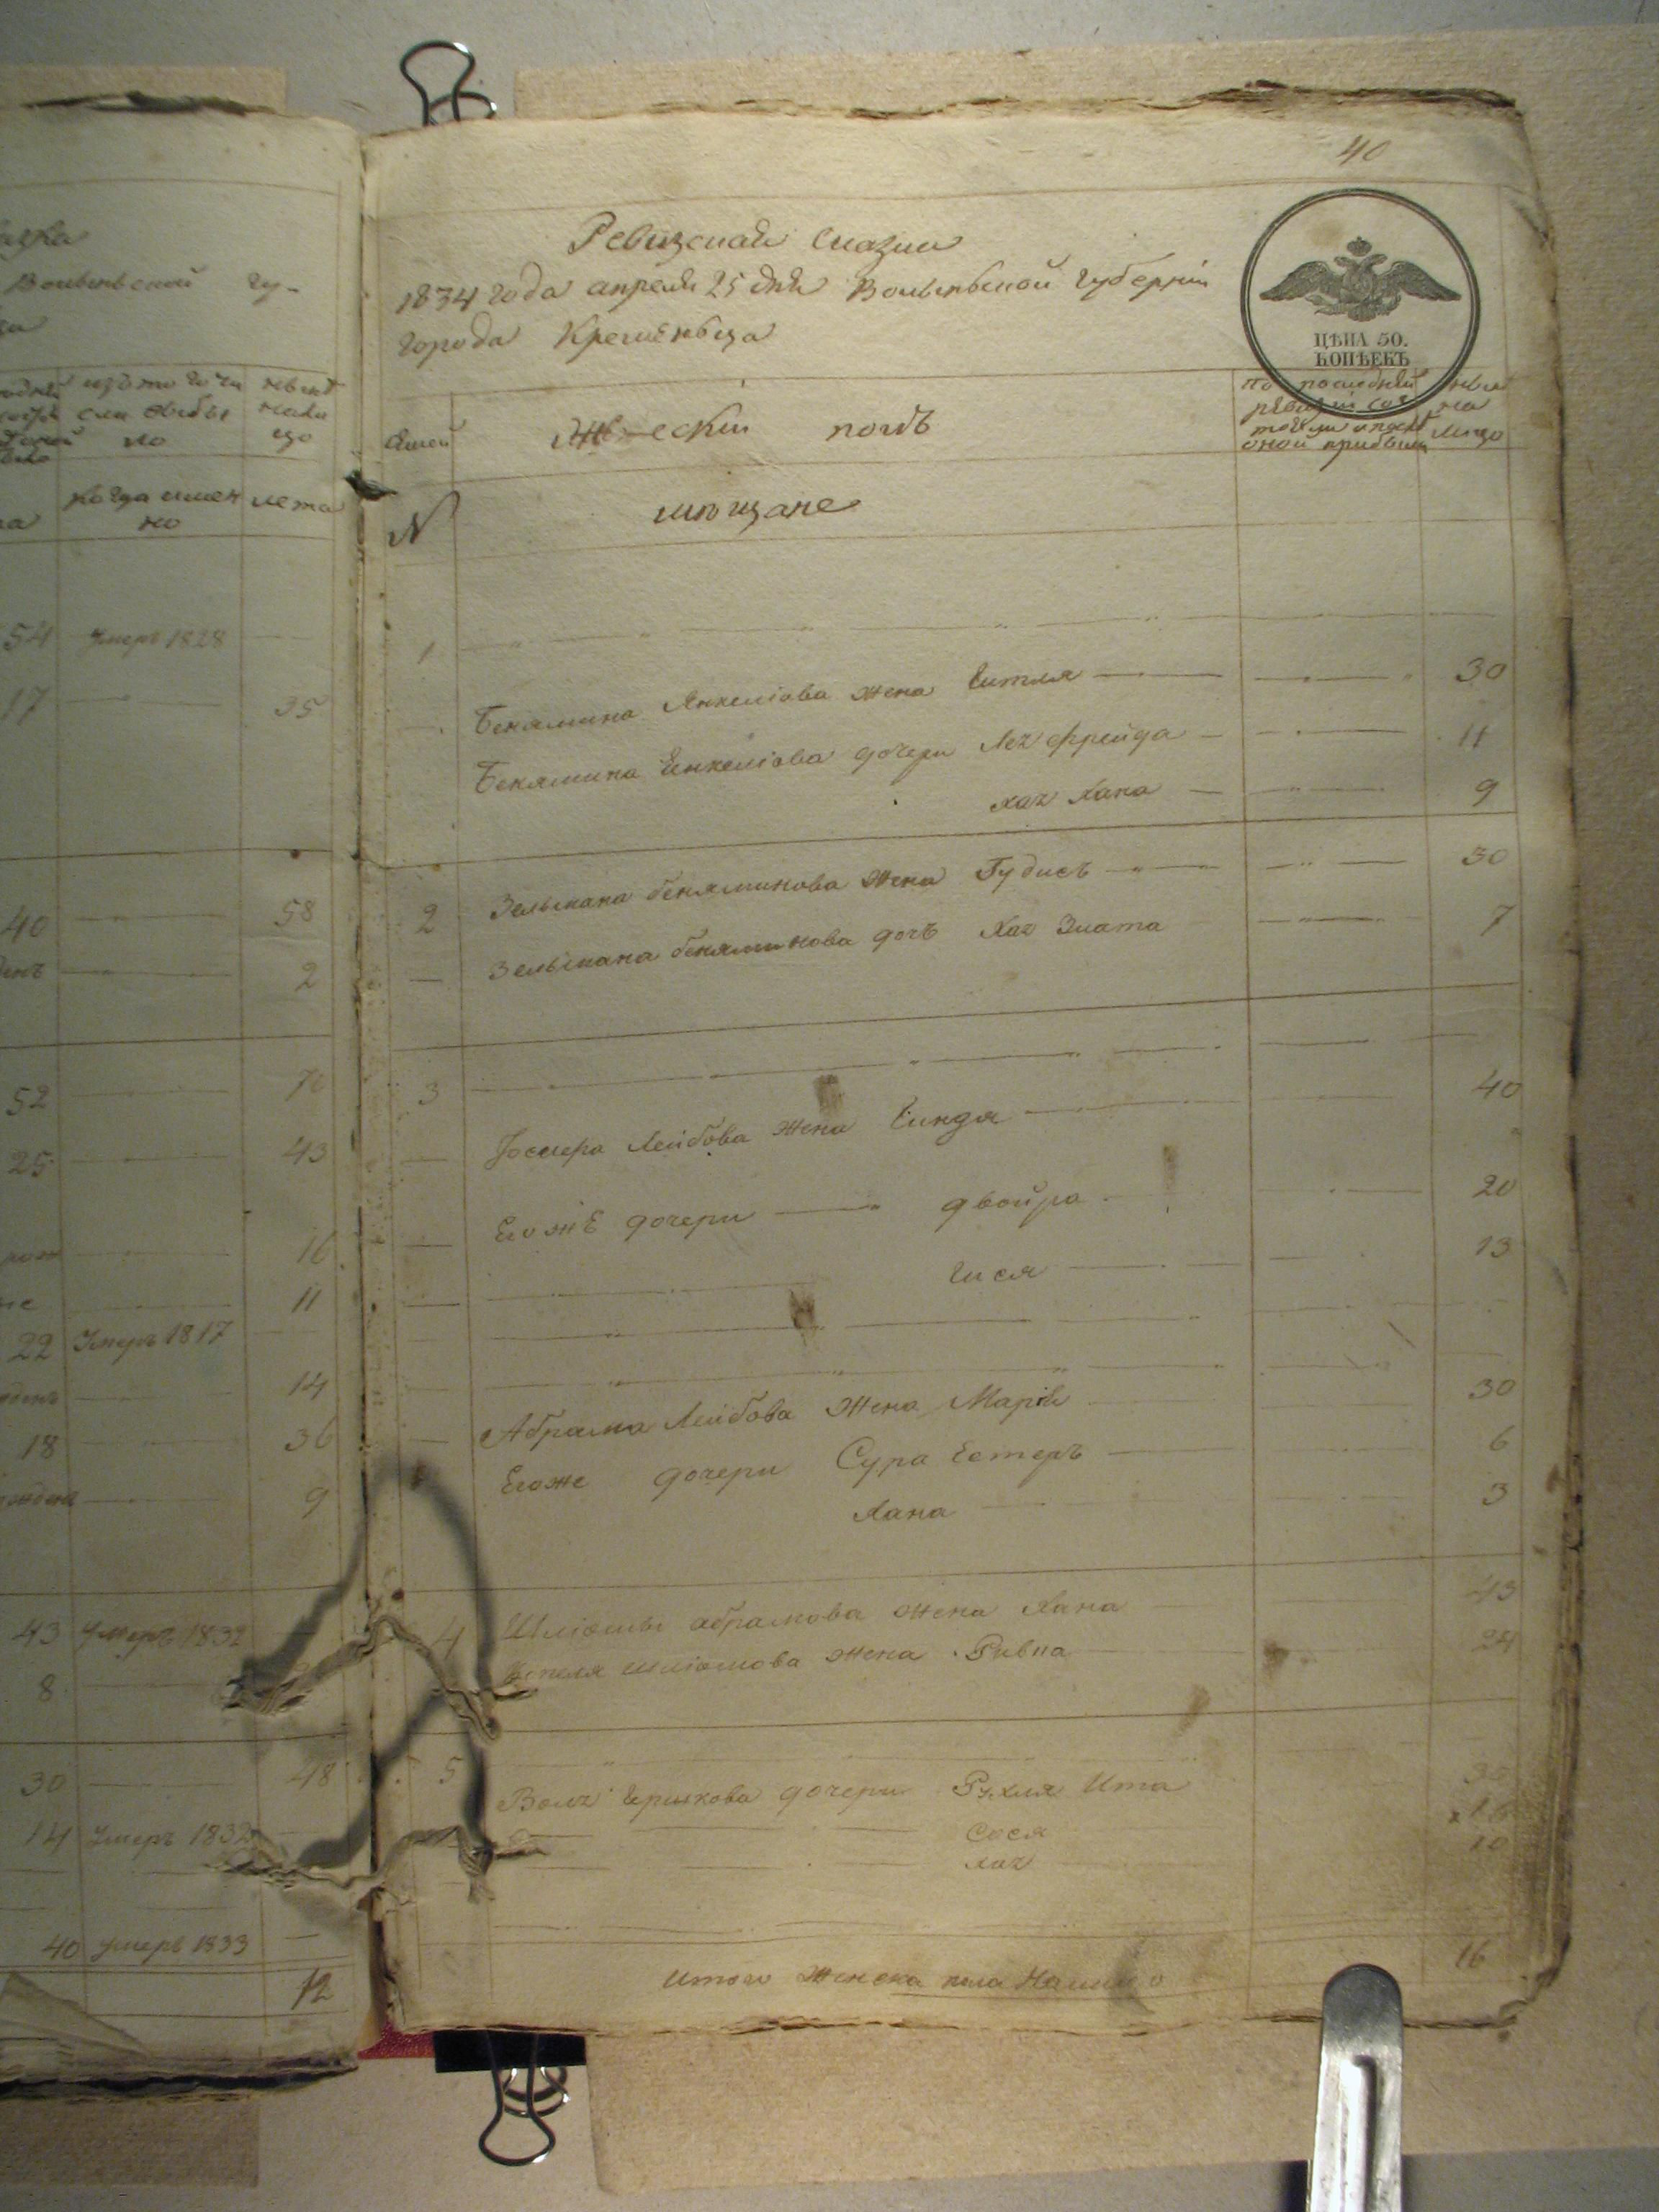 азка
Волынской гу-
изъ то го чи
сла выбы
ло
нынѣ
нали
цо
когда имен
но
лета
54 Умеръ 1828
17 35
40 58
2
52 70
25 43
16
11
22 Умеръ 1817
14
18 36
9
43 Умеръ 1832
8
30 48
14 Умеръ 1832
40 Умеръ 1833
12
40
Ревизская Сказка
1834 года апреля 25 дня Волынской губерніи
города Кременьца
ЦѢНА 50.
КОПѢЕКЪ
Жѣнескій полъ
по последней
ревизіи
оной прибыли
на
лицо
N мѣщане
1
Бенямина Янкеліова жена Гитля 30
Бенямина Енкеліова дочери Лея Фрейда 11
Хая Хана 9
2 Зельмана Беняминова жена Гудись 30
Зельмана Беняминова дочъ Хая Злата 7
3
Іосифа Лейбова жена Гиндя 40
Егожѣ дочери двойра 20
Гися 13
Абрама Лейбова жена Марія 30
Егоже дочери Сура Естеръ 6
Хана 3
4 Шліомы абрамова жена Хана 43
шліомова жена Ривка 24
5
Волъ Гершкова дочери Рухля Ита
Сося
Хая 10
Итого женска пола Налицо 16